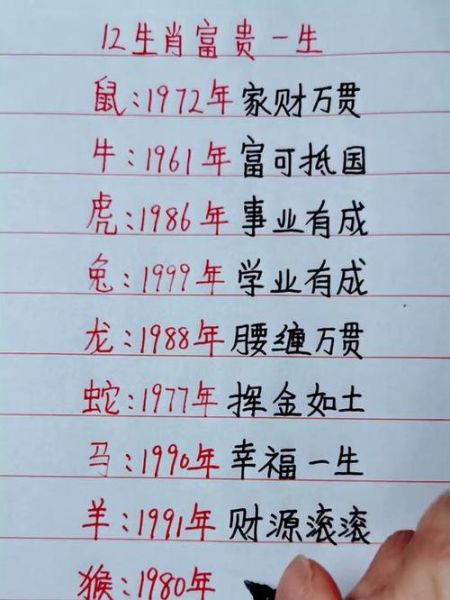 12生肖富贵一生
鼠:1972年 家财万贯
牛:1961年 富可抵国
虎:1986年 事业有成
兔:1999年 学业有成
龙:1988年 腰缠万贯
蛇:1977年 挥金如土
马:1990年 幸福一生
羊:1991年 财源滚滚
猴:1980年